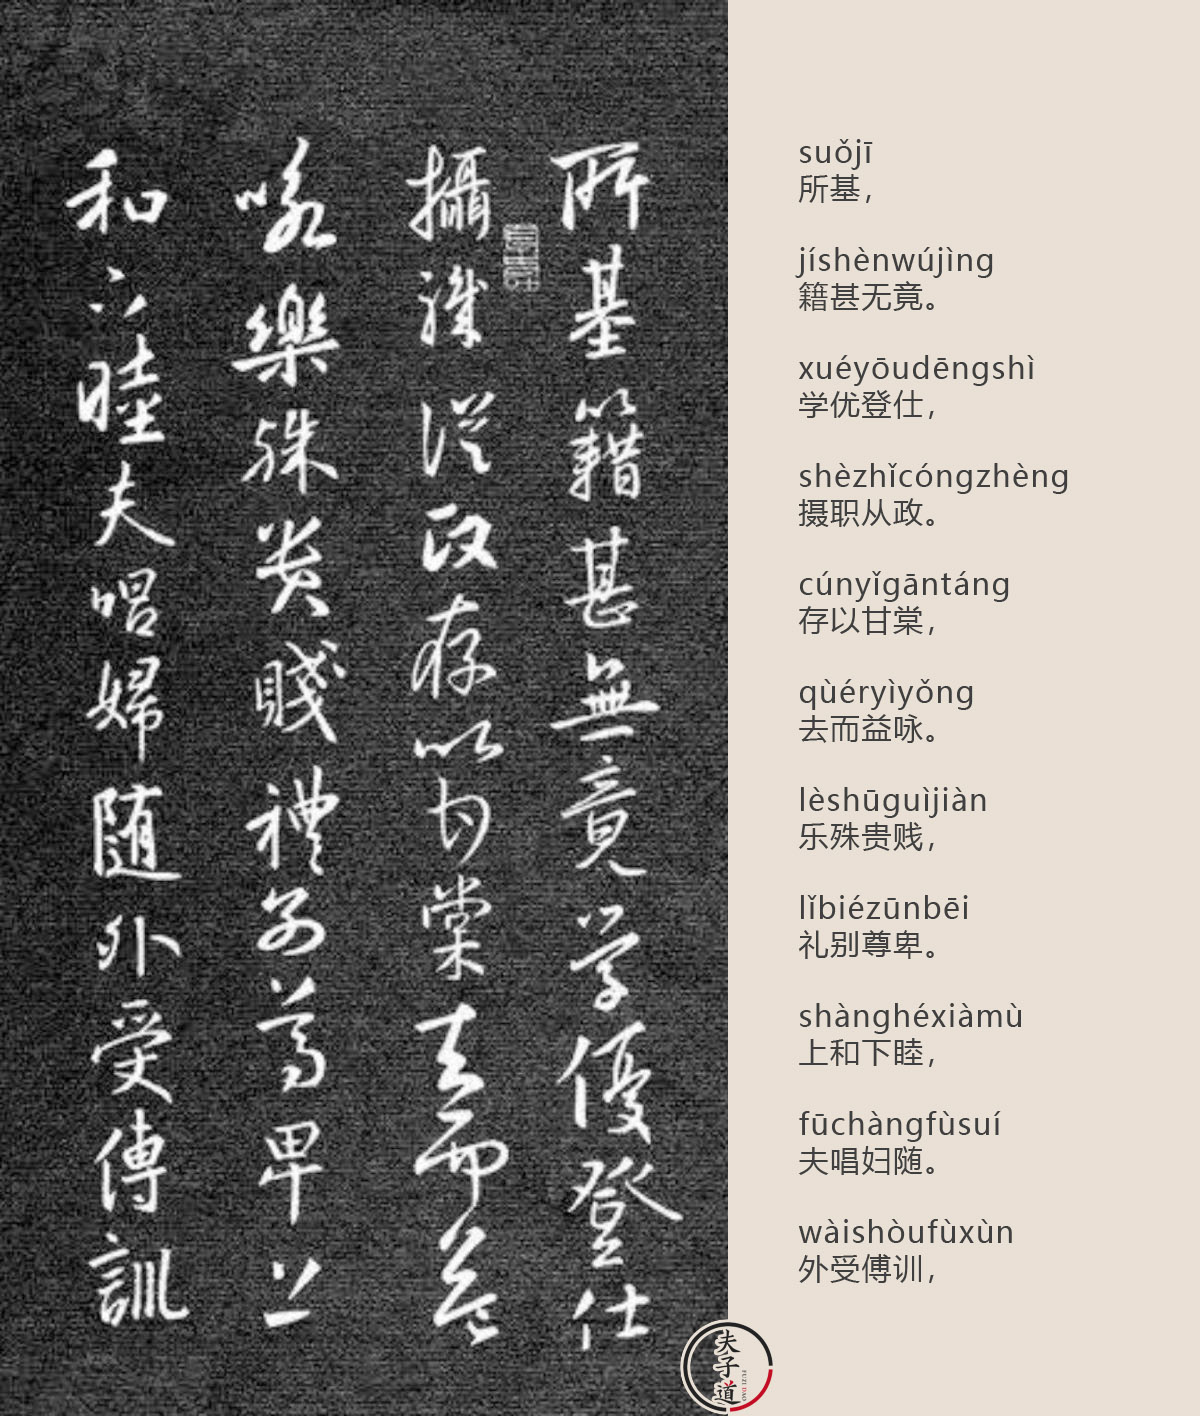 所基籍甚無竟学優登仕
攝職従政存以甘棠去而益
咏樂殊贵賤禮别尊卑上
和下睦夫唱婦随外受傅訓
suǒjī
所基，
jíshènwújìng
籍甚无竟。
xuéyōudēngshì
学优登仕，
shèzhǐcóngzhèng
摄职从政。
cúnyǐgāntáng
存以甘棠，
qùéryìyǒng
去而益咏。
lèshūguìjiàn
乐殊贵贱，
lǐbiézūnbēi
礼别尊卑。
shànghéxiàmù
上和下睦，
fūchàngfùsuí
夫唱妇随。
wàishòufùxùn
外受傅训，
夫子道
FUZI DAO